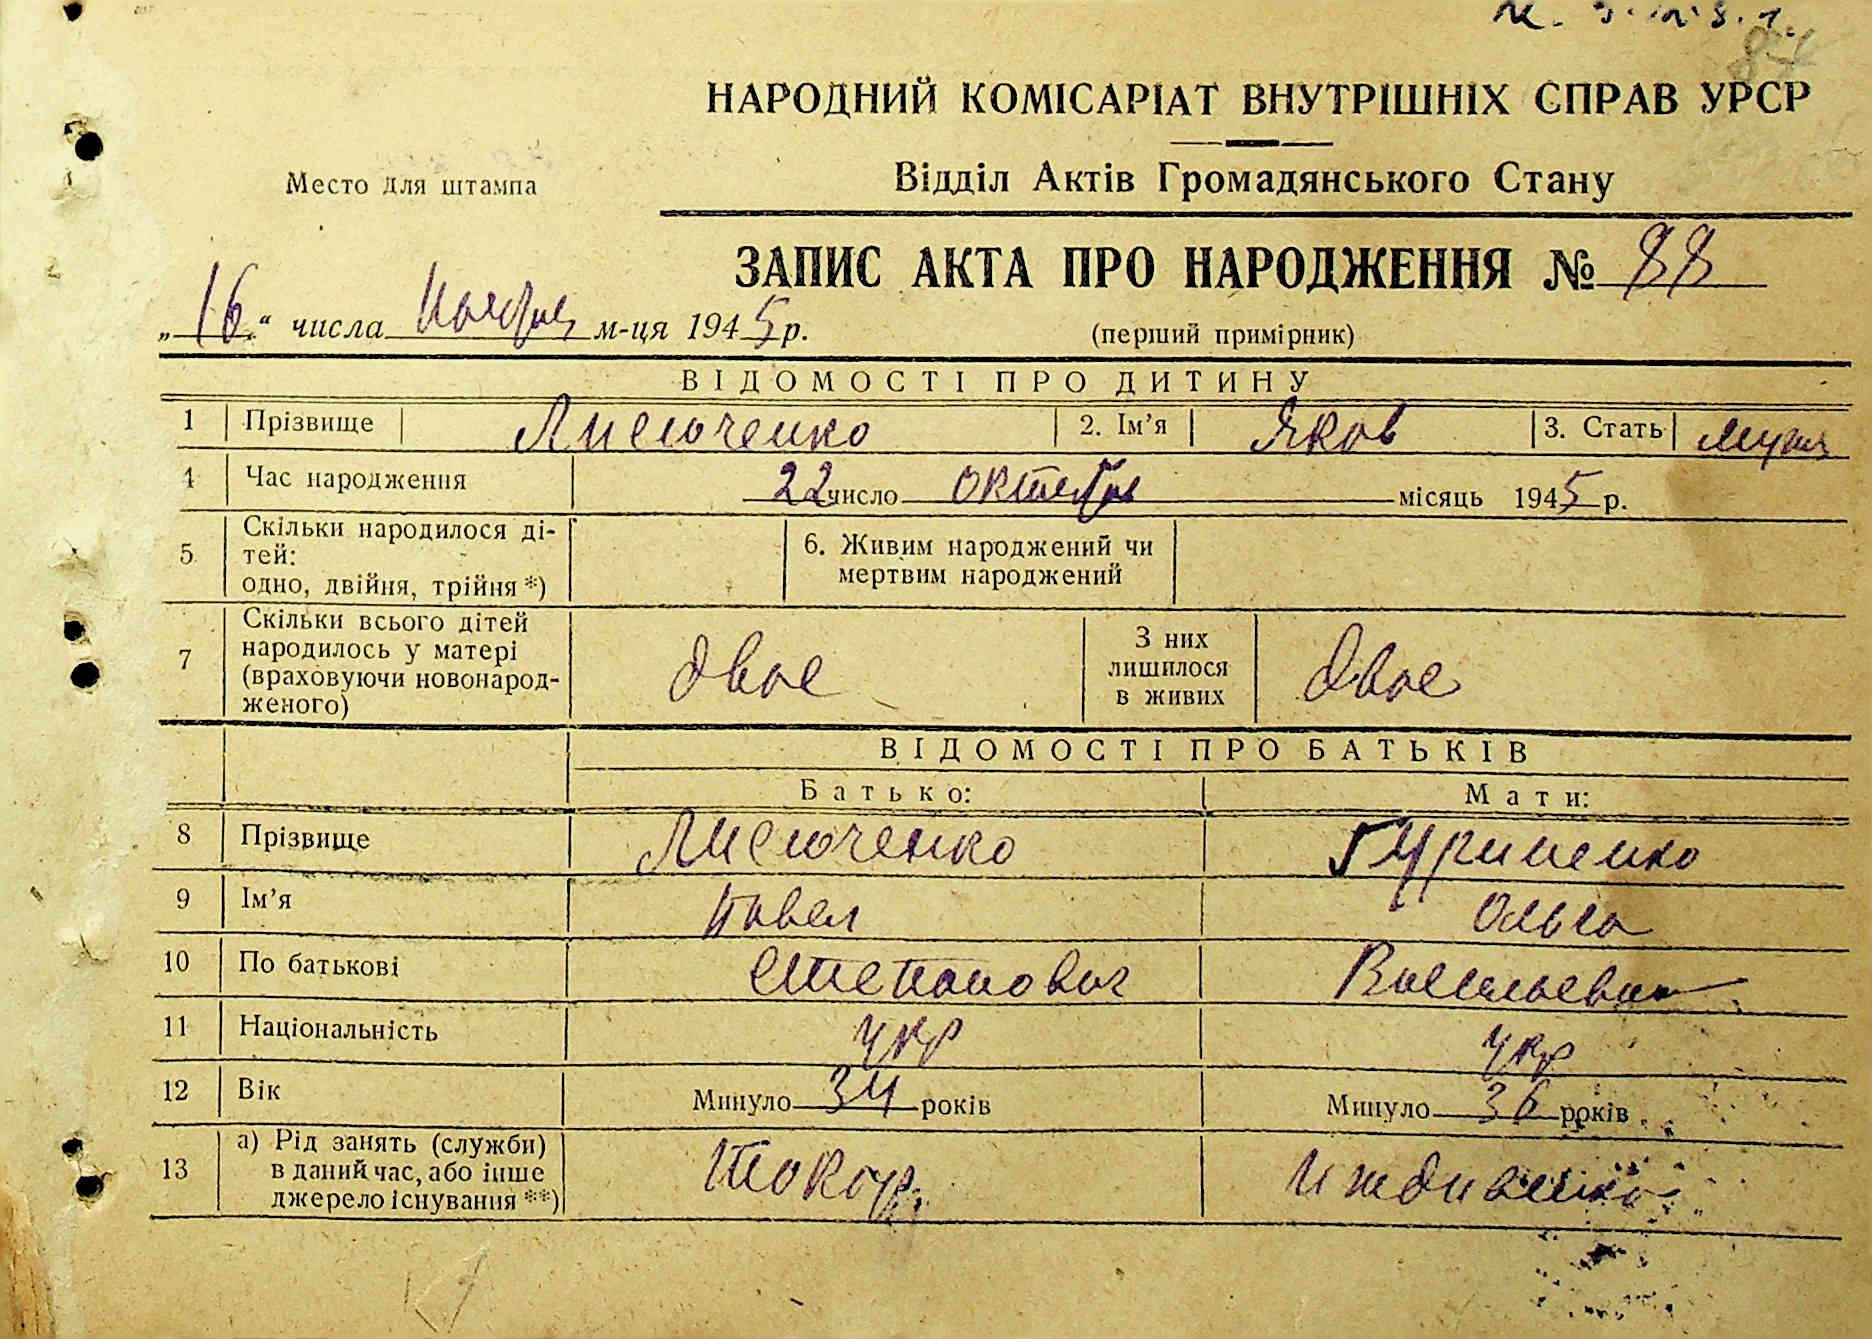 87
НАРОДНИЙ КОМІСАРІАТ ВНУТРІШНІХ СПРАВ УРСР
Место для штампа
Відділ Актів Громадянського Стану
ЗАПИС АКТА ПРО НАРОДЖЕННЯ № 88
„16“ числа Ноября м-ця 1945 р.
(перший примірник)
ВІДОМОСТІ ПРО ДИТИНУ
1 Прізвище Лисюченко 2. Ім'я Яков 3. Стать мужя
4 Час народження 22 число октября місяць 1945 р.
5 Скільки народилося ді-
тей:
одно, двійня, трійня *)
6. Живим народжений чи
мертвим народжений
7 Скільки всього дітей
народилось у матері
(враховуючи новонарод-
женого)
двое
З них
лишилося
в живих
двое
ВІДОМОСТІ ПРО БАТЬКІВ
Батько: Мати:
8 Прізвище Лисюченко Гуриненко
9 Ім'я Павел Ольга
10 По батькові Степанович Васильевна
11 Національність укр укр
12 Вік Минуло 34 років Минуло 36 років
13 а) Рід занять (служби)
в даний час, або інше
джерело існування **)
токарь иждивенка